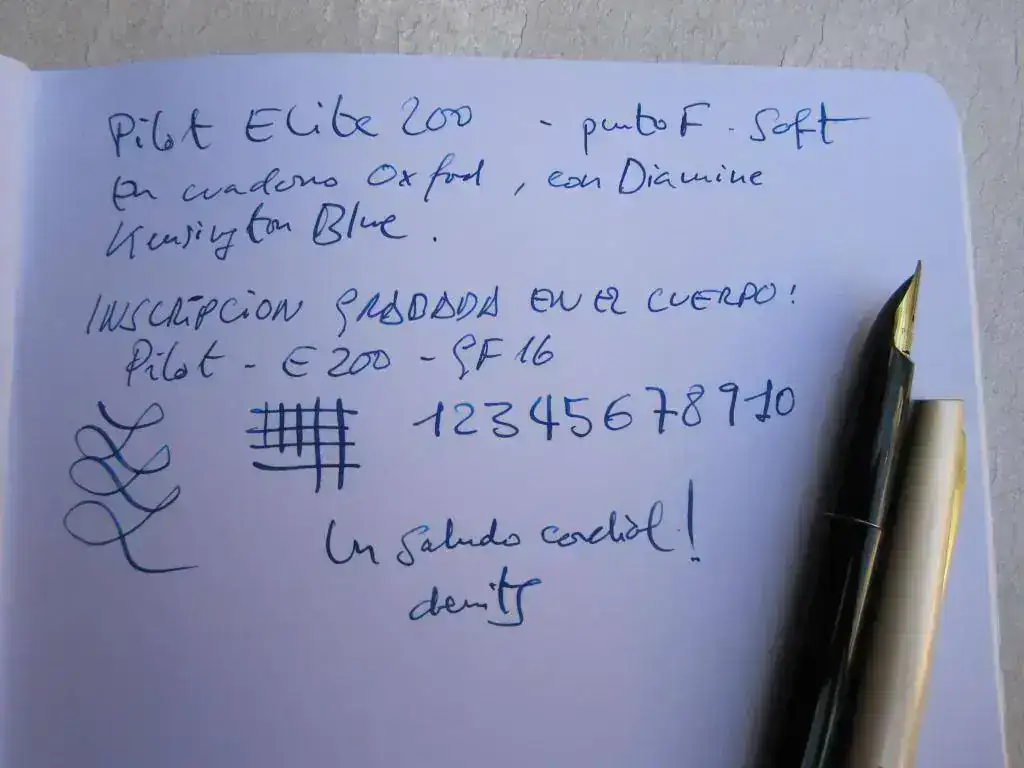 Pilot Elite 200 - punto F - Soft
En cuaderno Oxford, con Diamine
Kensington Blue.
INSCRIPCION GRABADA EN EL CUERPO:
Pilot - E 200 - GF 16
1 2 3 4 5 6 7 8 9 10
Un saludo cordial!